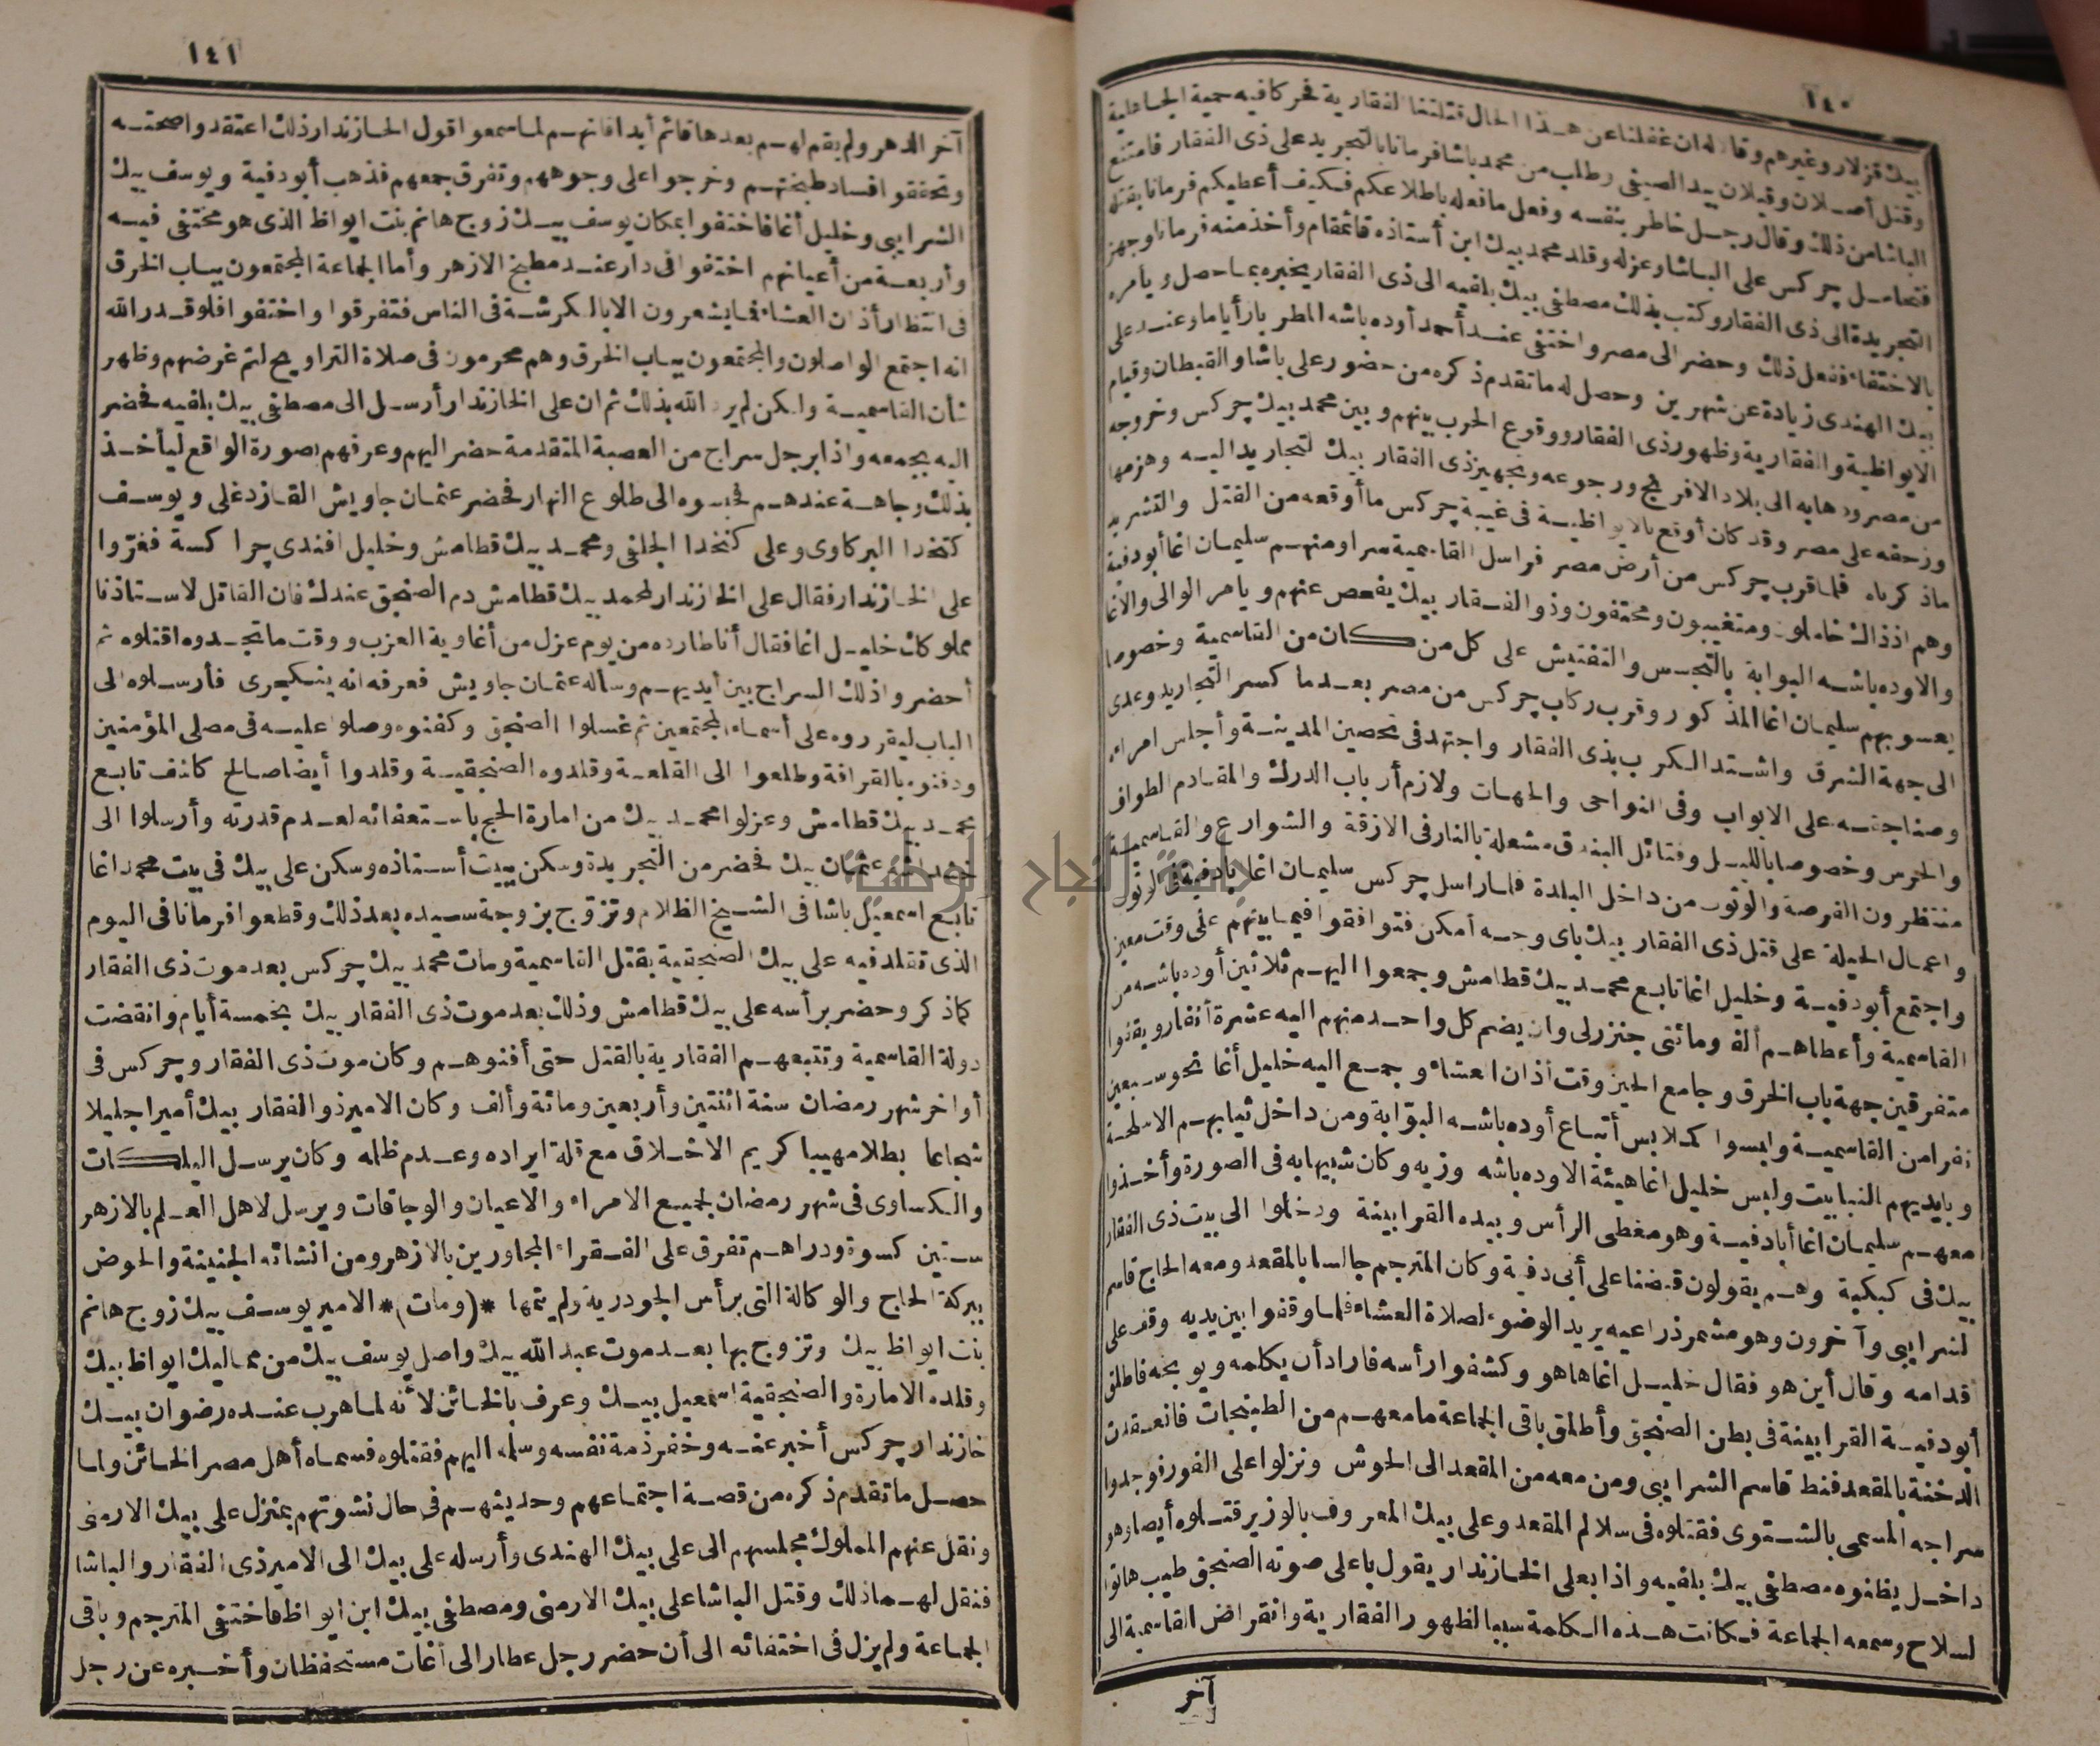 ١٤٠
بيك قزلار وغيرهم وقال له ان غفلنا عن هذا الحال قتلتنا الفقارية فحركا فيه حمية الجاهلية
وقتل أصلان وقيلان بيد الصيفى وطلب من محمد باشا فرمانا بالتجريد على ذى الفقار فامتنع
الباشا من ذلك وقال رجل خاطر بنفسه وفعل ما فعله باطلاعكم فكيف أعطيكم فرمانا بقتله
فتحامل چركس على الباشا وعزله وقلد محمد بيك ابن أستاذه قائمقام وأخذ منه فرمانا وجهز
التجريدة الى ذى الفقار وكتب بذلك مصطفى بيك بلفيه الى ذى الفقار يخبره بما حصل ويأمره
بالاختفاء ففعل ذلك وحضر الى مصر واختفى عند أحمد أوده باشه المطرباز أياما وعند على
بيك الهندى زيادة عن شهرين وحصل له ما تقدم ذكره من حضور على باشا والقبطان وقيام
الايواظية والفقارية وظهور ذى الفقار ووقوع الحرب بينهم وبين محمد بيك چركس وخروجه
من مصر وذهابه الى بلاد الافرنج ورجوعه وتجهيز ذى الفقار بيك التجاريد اليه وهزمها
وزحفه على مصر وقد كان أوقع بالايواظية فى غيبة چركس ما أوقعه من القتل والتشريد
ماذكرناه فلما قرب چركس من أرض مصر فراسل القاسمية سرا ومنهم سليمان اغا أبو دفية
وهم اذ ذاك خاملون ومتغيبون ومختفون وذو الفقار بيك يفحص عنهم ويامر الوالى والاغا
والاوده باشه البوابة بالتجسس والتفتيش على كل من كان من القاسمية وخصوصا
يعسوبهم سليمان اغا المذكور وقرب ركاب چركس من مصر بعدما كسر التجاريد وعدى
الى جهة الشرق واشتد الكرب بذى الفقار واجتهد فى تحصين المدينة وأجلس امراءه
وصناجقه على الابواب وفى النواحى والجهات ولازم أرباب الدرك والمقادم الطواف
والحرس وخصوصا بالليل وفتائل البندق مشعلة بالنار فى الازقة والشوارع والقاسمية
منتظرون الفرصة والوثوب من داخل البلدة فلما راسل چركس سليمان اغا أبا دفية فى الوثوب
واعمال الحيلة على قتل ذى الفقار بيك باى وجه أمكن فتوافقوا فيما بينهم على وقت معين
واجتمع أبو دفية وخليل اغا تابع محمد بيك قطامش وجمعوا اليهم ثلاثين أوده باشه من
القاسمية وأعطاهم ألف ومائتى جنزرلى وان يضم كل واحد منهم اليه عشرة أنفار ويقفوا
متفرقين جهة باب الخرق وجامع الحين وقت أذان العشاء وجمع اليه خليل أغا نحو سبعين
نفرا من القاسمية ولبسوا كملابس أتباع أوده باشه البوّابة ومن داخل ثيابهم الاسلحة
وبايديهم النبابيت ولبس خليل اغا هيئة الاوده باشه وزيه وكان شبيها به فى الصورة وأخذوا
معهم سليمان اغا أبا دفية وهو مغطى الرأس وبيده القرابينة ودخلوا الى بيت ذى الفقار
بيك فى كبكبة وهم يقولون قبضنا على أبى دفية وكان المترجم جالسا بالمقعد ومعه الحاج قاسم
الشرايبى وآخرون وهو مشمر ذراعيه يريد الوضوء لصلاة العشاء فلما وقفوا بين يديه وقف على
قدامه وقال أين هو فقال خليل اغا ها هو وكشفوا رأسه فاراد أن يكلمه ويوبخه فاطلق
أبو دفية القرابينة فى بطن الصنجق وأطلق باقى الجماعة ما معهم من الطبنجات فانعقدت
الدخنة بالمقعد فنط قاسم الشرايبى ومن معه من المقعد الى الحوش ونزلوا على الفور فوجدوا
سراجه المسمى بالشتوى فقتلوه فى سلالم المقعد وعلى بيك المعروف بالوزير قتلوه أيضا وهو
داخل يظنوه مصطفى بيك بلفيه واذا بعلى الخازندار يقول باعلى صوته الصنجق طيب هاتوا
السلاح وسمعه الجماعة فكانت هذه الكلمة سببا لظهور الفقارية وانقراض القاسمية الى
آخر
١٤١
آخر الدهر ولم يقم لهم بعدها قائم أبدا فانهم لما سمعوا قول الخازندار ذلك اعتقدوا صحته
وتحققوا افساد طبختهم وخرجوا على وجوههم وتفرق جمعهم فذهب أبو دفية ويوسف بيك
الشرايبى وخليل أغا فاختفوا بمكان يوسف بيك زوج هانم بنت ايواظ الذى هو مختفى فيه
وأربعة من أعيانهم اختفوا فى دار عند مطبخ الازهر وأما الجماعة المجتمعون بباب الخرق
فى انتظار أذان العشاء فما يشعرون الا بالكرشة فى الناس فتفرقوا واختفوا فلو قدر الله
انه اجتمع الواصلون والمجتمعون بباب الخرق وهم محرمون فى صلاة التراويح لتم غرضهم وظهر
شأن القاسمية ولكن لم يرد الله بذلك ثم ان على الخازندار أرسل الى مصطفى بيك بلفيه فحضر
اليه بجمعه واذا برجل سراج من العصبة المتقدمة حضر اليهم وعرفهم بصورة الواقع ليأخذ
بذلك وجاهة عندهم فحبسوه الى طلوع النهار فحضر عثمان جاويش القازدغلى ويوسف
كتخدا البركاوى وعلى كتخدا الجلفى ومحمد بيك قطامش وخليل افندى چراكسة فعزّوا
على الخازندار فقال على الخازندار لمحمد بيك قطامش دم الصنجق عندك فان القاتل لاستاذنا
مملوكك خليل اغا فقال أنا طارده من يوم عزل من أغاوية العزب ووقت ما تجدوه اقتلوه ثم
أحضروا ذلك السراج بين أيديهم وسأله عثمان جاويش فعرفه انه ينكجرى فأرسلوه الى
الباب ليقرروه على أسماء المجتمعين ثم غسلوا الصنجق وكفنوه وصلوا عليه فى مصلى المؤمنين
ودفنوه بالقرافة وطلعوا الى القلعة وقلدوه الصنجقية وقلدوا أيضا صالح كاشف تابع
محمد بيك قطامش وعزلوا محمد بيك من امارة الحج باستعفائه لعدم قدرته وأرسلوا الى
خشداشه عثمان بيك فحضر من التجريدة وسكن ببيت أستاذه وسكن على بيك فى بيت محمد اغا
تابع اسمعيل باشا فى الشيخ الظلام وتزوّج بزوجة سيده بعد ذلك وقطعوا فرمانا فى اليوم
الذى تقلد فيه على بيك الصنجقية بقتل القاسمية ومات محمد بيك چركس بعد موت ذى الفقار
كما ذكر وحضر برأسه على بيك قطامش وذلك بعد موت ذى الفقار بيك بخمسة أيام وانقضت
دولة القاسمية وتتبعهم الفقارية بالقتل حتى أفنوهم وكان موت ذى الفقار وچركس فى
أواخر شهر رمضان سنة اثنتين وأربعين ومائة وألف وكان الامير ذو الفقار بيك أميرا جليلا
شجاعا بطلا مهيبا كريم الاخلاق مع قلة ايراده وعدم ظلمه وكان يرسل اليلكات
والكساوى فى شهر رمضان لجميع الامراء والاعيان والوجاقات ويرسل لاهل العلم بالازهر
ستين كسوة ودراهم تفرق على الفقراء المجاورين بالازهر ومن انشائه الجنينة والحوض
ببركة الحاج والوكالة التى برأس الجودرية ولم يتمها *(ومات)* الامير يوسف بيك زوج هانم
بنت ايواظ بيك وتزوج بها بعد موت عبد الله بيك واصل يوسف بيك من مماليك ايواظ بيك
وقلده الامارة والصنجقية اسمعيل بيك وعرف بالخائن لأنه لما هرب عنده رضوان بيك
خازندار چركس أخبر عنه وخفر ذمة نفسه وسلمه اليهم فقتلوه فسماه أهل مصر الخائن ولما
حصل ما تقدم ذكره من قصة اجتماعهم وحديثهم فى حال نشوتهم بمنزل على بيك الارمنى
ونقل عنهم المملوك مجلسهم الى على بيك الهندى وأرسله على بيك الى الامير ذى الفقار والباشا
فنقل لهما ذلك وقتل الباشا على بيك الارمنى ومصطفى بيك ابن ايواظ فاختفى المترجم وباقى
الجماعة ولم يزل فى اختفائه الى أن حضر رجل عطار الى أغات مستحفظان وأخبره عن رجل
جامعة النجاح الوطنية